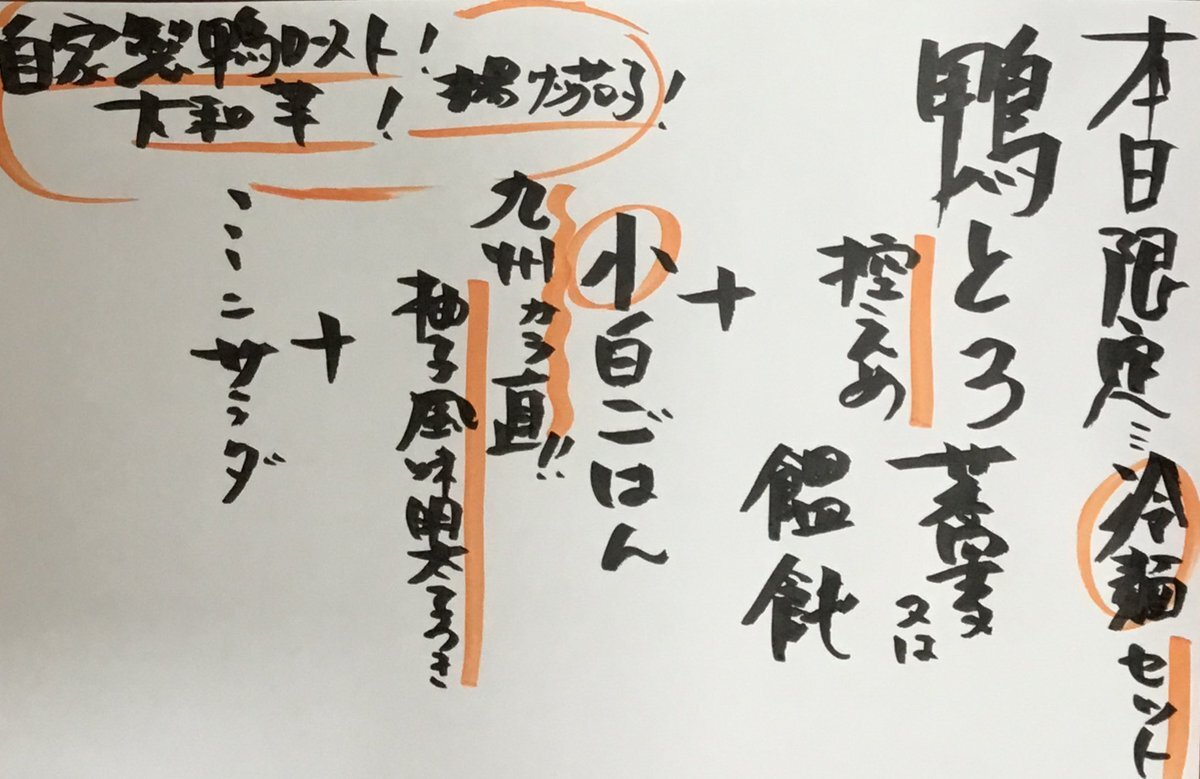 本日限定ミ冷麺セット
鴨とろ蕎麦又は
控えめ
饂飩
+
小白ごはん
九州から直!!
柚子風味明太子つき
+
ミニサラダ
自家製鴨ロースト!
大和芋!
揚げ茄子!